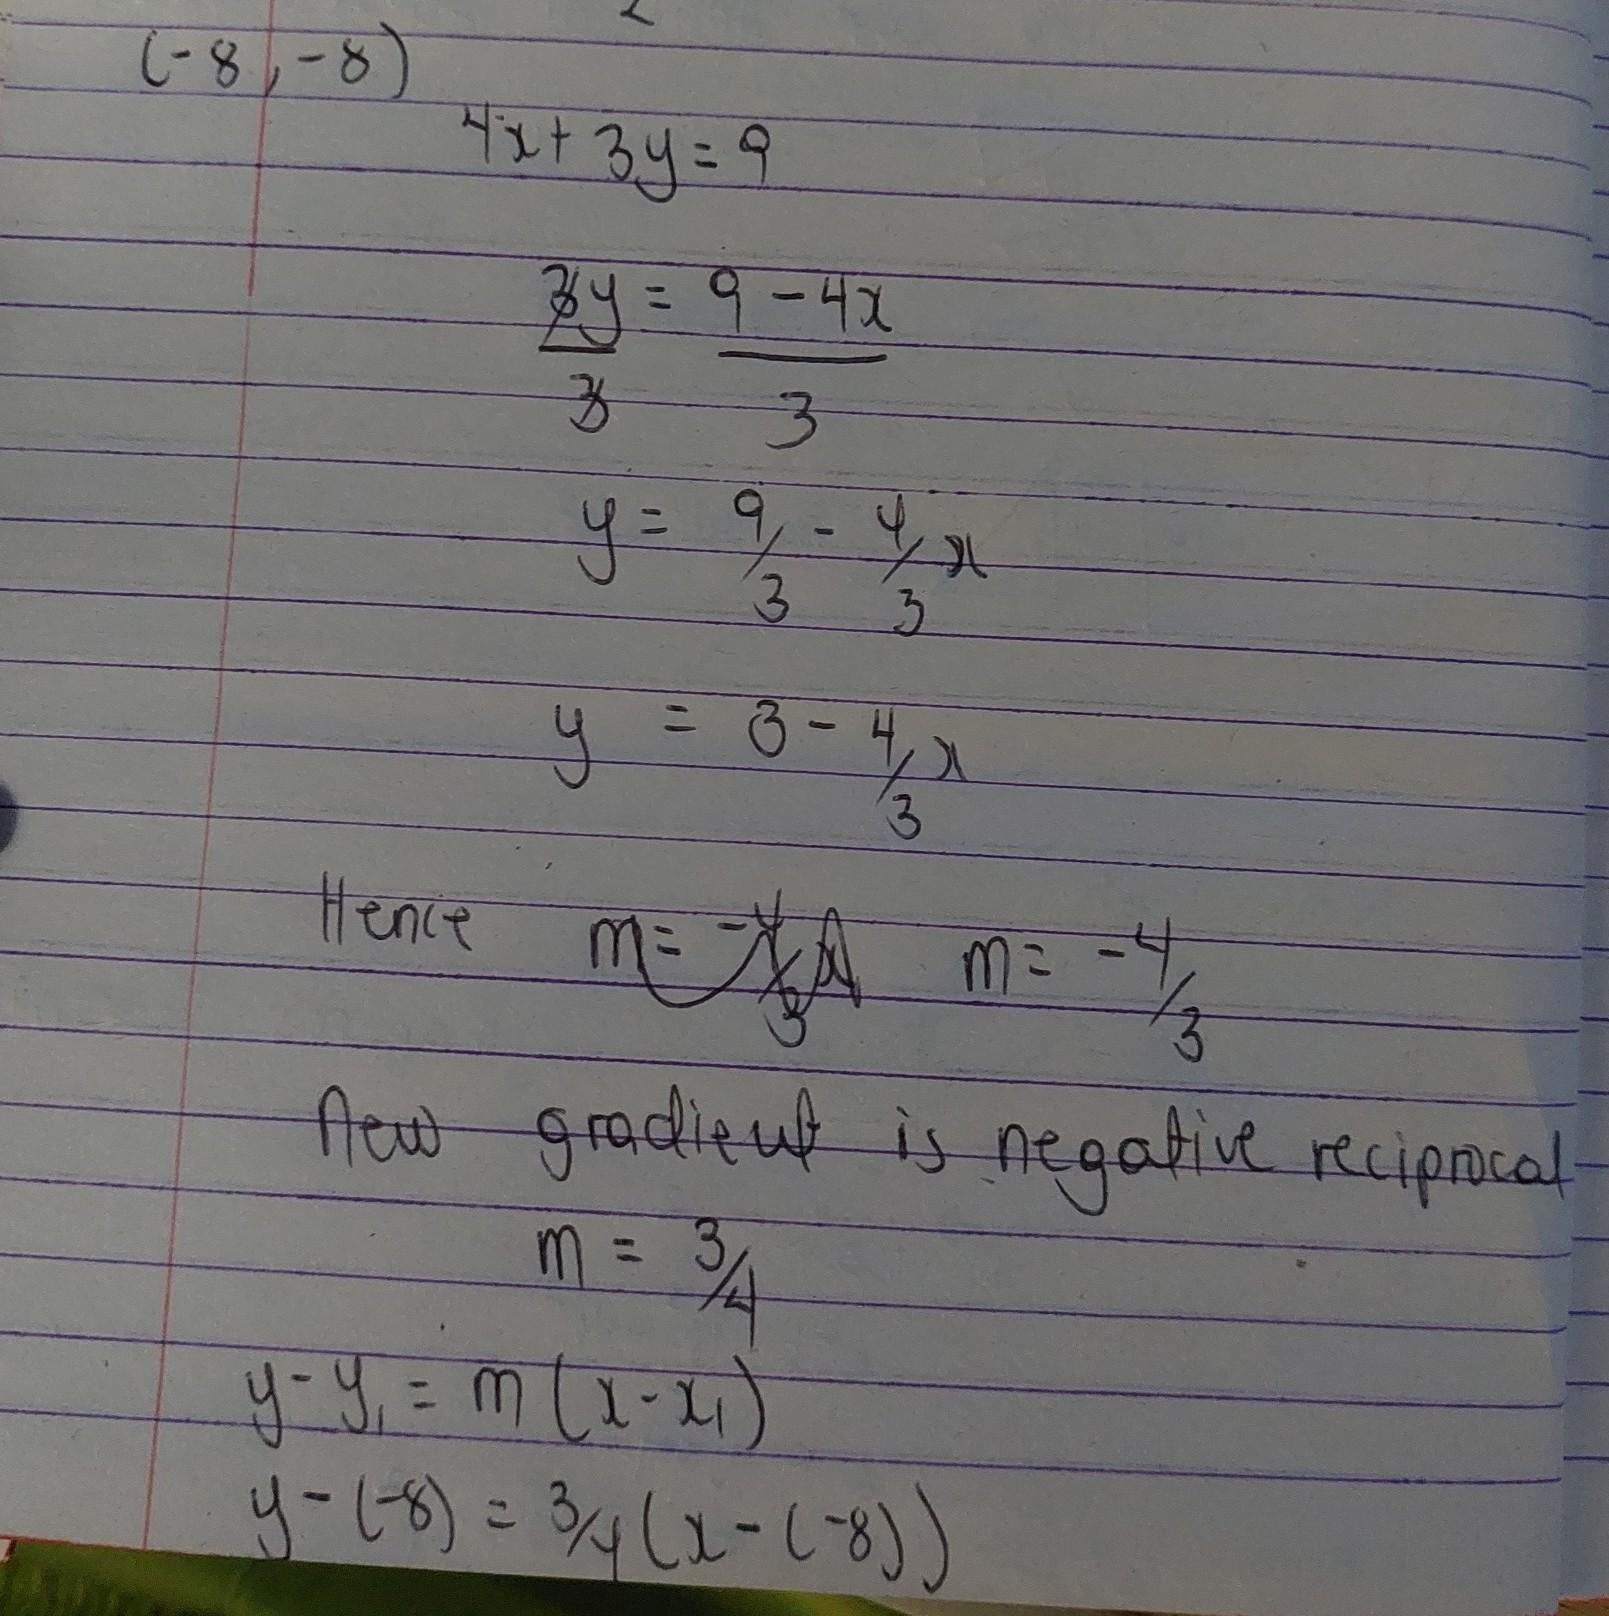 (-8, -8)
4x + 3y = 9
3y = 9 - 4x
3 3
y = 9/3 - 4/3 x
y = 3 - 4/3 x
Hence m = -4/3 m = -4/3
New gradient is negative reciprocal
m = 3/4
y - y₁ = m (x - x₁)
y - (-8) = 3/4 (x - (-8))